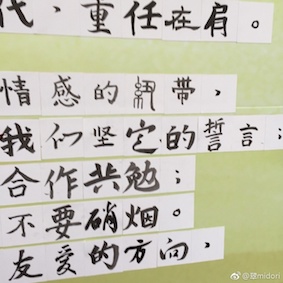 代,重任在肩。
情感的紐帶,
我们坚定的誓言;
合作共勉;
不要硝烟。
友愛的方向,
midori